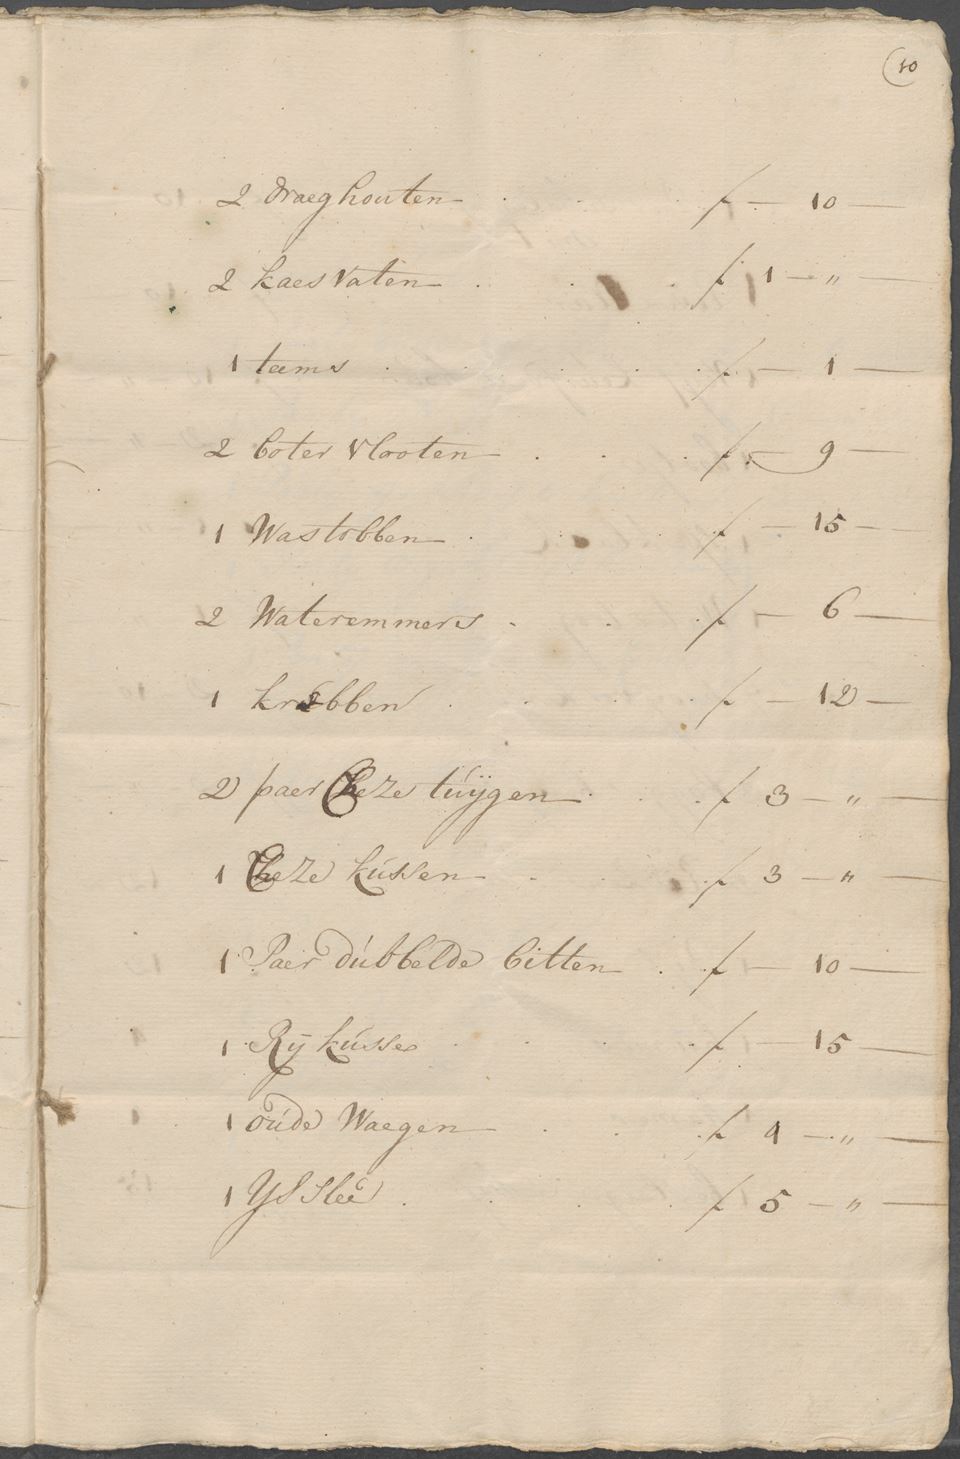 10
2 draeghouten . . . f — 10 —
2 kaesvaten . . . f 1 — „ —
1 teems . . . f — 1 —
2 boter vlooten . . . f — 9 —
1 Wastobben . . . f — 15 —
2 Wateremmers . . . f — 6 —
1 krebben . . . f — 12 —
2 paer Cheze túÿgen . . . f 3 — „ —
1 Cheze kússen . . . f 3 — „ —
1 Paer dúbbelde bitten . f — 10 —
1 Rÿ kússe . . . f — 15 —
1 oúde Waegen . . . f 4 — „ —
1 Ys Slee . . . f 5 — „ —